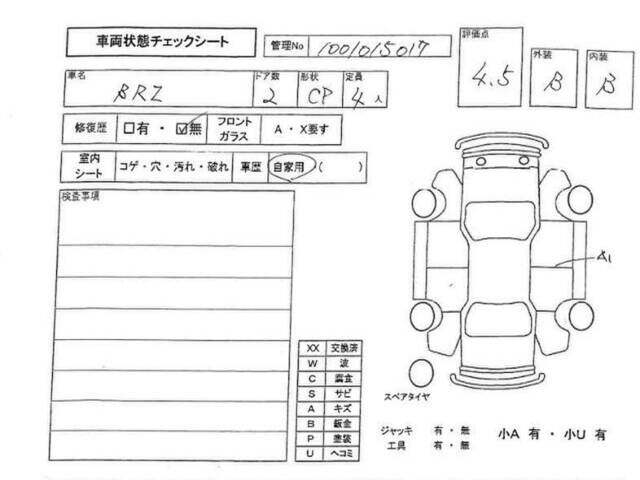 車両状態チェックシート
管理No 1001015017
評価点 4.5
外装 B
内装 B
車名 BRZ
ドア数 2
形状 CP
定員 4人
修復歴 □有・☑無
フロントガラス A・X要す
室内シート コゲ・穴・汚れ・破れ
車歴 自家用 ( )
検査事項
A1
XX 交換済
W 波
C 腐食
S サビ
A キズ
B 鈑金
P 塗装
U ヘコミ
スペアタイヤ
ジャッキ 有・無
工具 有・無
小A 有・小U 有